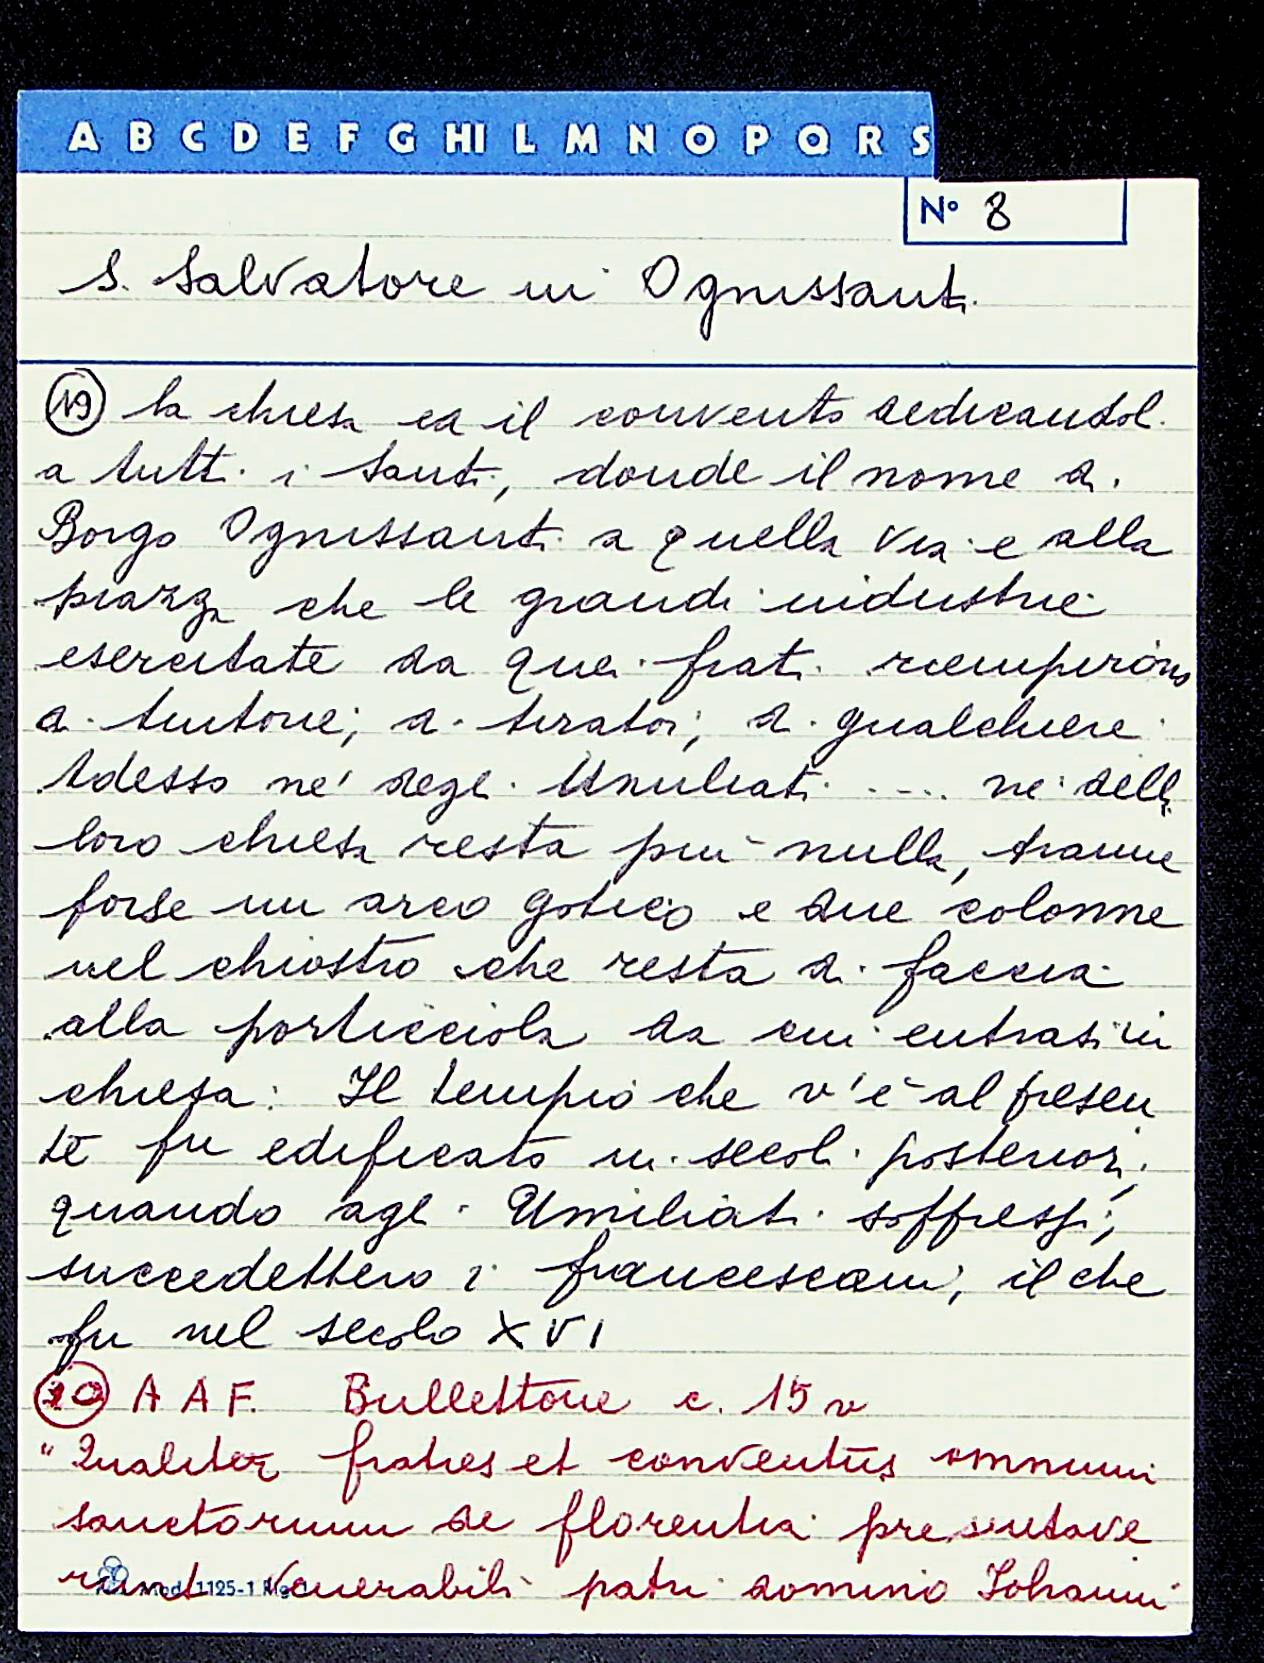 A B C D E F G HI L M N O P Q R S
N° 8
S. Salvatore in Ognissanti
19 la chiesa ed il convento dedicandol.
a tutti i Santi, donde il nome di
Borgo Ognissanti a quella via e alla
piazza che le grandi industrie
esercitate da quei frati riempirono
di tintorie; di tiratoi; di gualchiere
Adesso né degli Umiliati .... né della
loro chiesa resta più nulla, tranne
forse un arco gotico e due colonne
nel chiostro che resta di faccia
alla porticciola da cui entrasi in
chiesa. Il tempio che v'è al presen
te fu edificato in secoli posteriori,
quando agli Umiliati soppressi,
succedettero i francescani, il che
fu nel secolo XVI
20 A A F. Bullettone c. 15 v
"Qualiter fratres et conventus omnium
sanctorum de florentia presentave
runt venerabili patri domino Iohanni
Mod. 1125-1